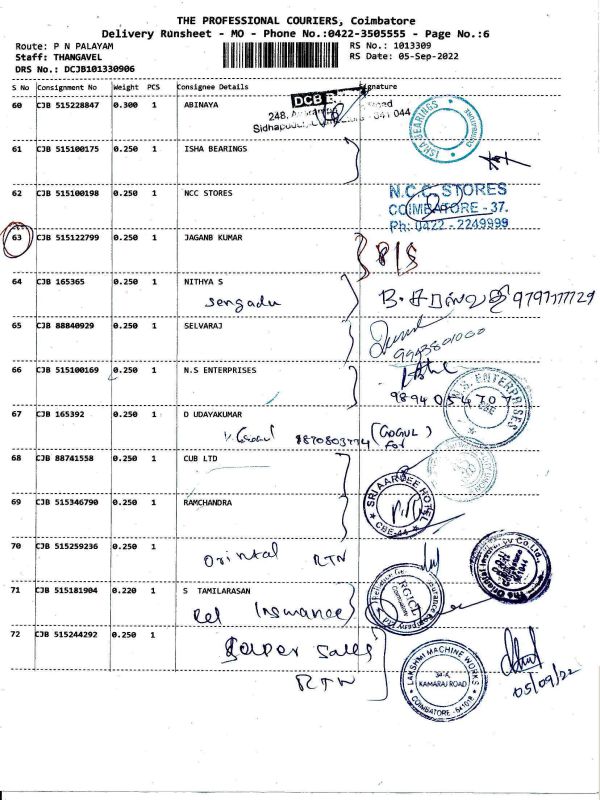 THE PROFESSIONAL COURIERS, Coimbatore
Delivery Runsheet - MO - Phone No.:0422-3505555 - Page No.:6
Route: P N PALAYAM
RS No.: 1013309
Staff: THANGAVEL
RS Date: 05-Sep-2022
DRS No.: DCJB101330906
S No Consignment No Weight PCS Consignee Details Signature
60 CJB 515228847 0.300 1 ABINAYA
DCB
248,
044
ISHA BEARINGS
61 CJB 515100175 0.250 1 ISHA BEARINGS
62 CJB 515100198 0.250 1 NCC STORES
N.C.C. STORES
COIMBATORE - 37.
Ph: 0422 - 2249999
63 CJB 515122799 0.250 1 JAGANB KUMAR
64 CJB 165365 0.250 1 NITHYA S
Sengadu
65 CJB 88840929 0.250 1 SELVARAJ
66 CJB 515100169 0.250 1 N.S ENTERPRISES
N.S. ENTERPRISES
CBE
67 CJB 165392 0.250 1 D UDAYAKUMAR
8870803774 (GOGUL)
For
68 CJB 88741558 0.250 1 CUB LTD
69 CJB 515346790 0.250 1 RAMCHANDRA
SRI AARDEE HOTEL
CBE-44
70 CJB 515259236 0.250 1
Orintal RTN
71 CJB 515181904 0.220 1 S TAMILARASAN
Rel Insurance
RGICL
72 CJB 515244292 0.250 1
Super Sales
RTN
LAKSHMI MACHINE WORKS
34-A,
KAMARAJ ROAD
COIMBATORE - 641018
05/09/22